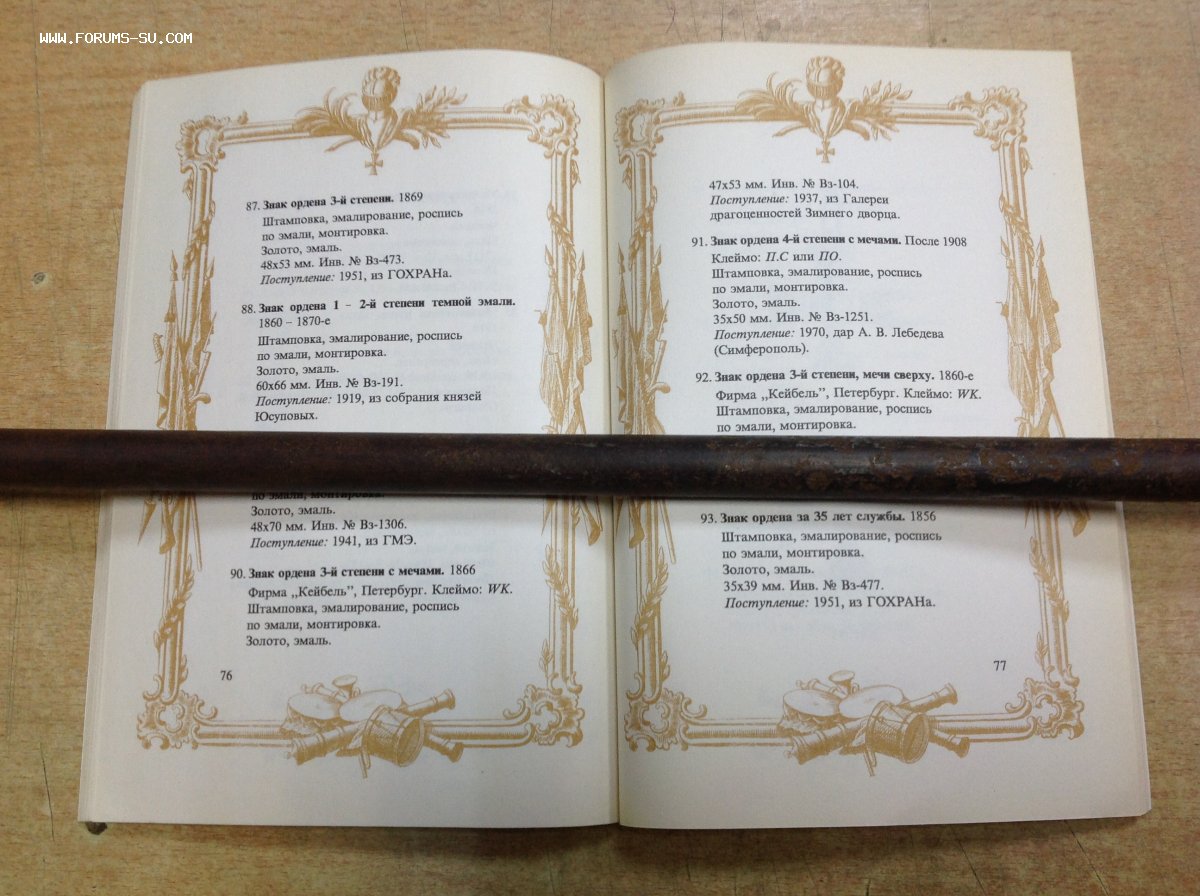 WWW.FORUMS-SU.COM
87. Знак ордена 3-й степени. 1869
Штамповка, эмалирование, роспись
по эмали, монтировка.
Золото, эмаль.
48x53 мм. Инв. № Вз-473.
Поступление: 1951, из ГОХРАНа.
88. Знак ордена 1 – 2-й степени темной эмали.
1860 – 1870-е
Штамповка, эмалирование, роспись
по эмали, монтировка.
Золото, эмаль.
60x66 мм. Инв. № Вз-191.
Поступление: 1919, из собрания князей
Юсуповых.
по эмали, монтировка.
Золото, эмаль.
48x70 мм. Инв. № Вз-1306.
Поступление: 1941, из ГМЭ.
90. Знак ордена 3-й степени с мечами. 1866
Фирма „Кейбель”, Петербург. Клеймо: WK.
Штамповка, эмалирование, роспись
по эмали, монтировка.
Золото, эмаль.
76
47x53 мм. Инв. № Вз-104.
Поступление: 1937, из Галереи
драгоценностей Зимнего дворца.
91. Знак ордена 4-й степени с мечами. После 1908
Клеймо: П.С или ПО.
Штамповка, эмалирование, роспись
по эмали, монтировка.
Золото, эмаль.
35x50 мм. Инв. № Вз-1251.
Поступление: 1970, дар А. В. Лебедева
(Симферополь).
92. Знак ордена 3-й степени, мечи сверху. 1860-е
Фирма „Кейбель”, Петербург. Клеймо: WK.
Штамповка, эмалирование, роспись
по эмали, монтировка.
93. Знак ордена за 35 лет службы. 1856
Штамповка, эмалирование, роспись
по эмали, монтировка.
Золото, эмаль.
35x39 мм. Инв. № Вз-477.
Поступление: 1951, из ГОХРАНа.
77